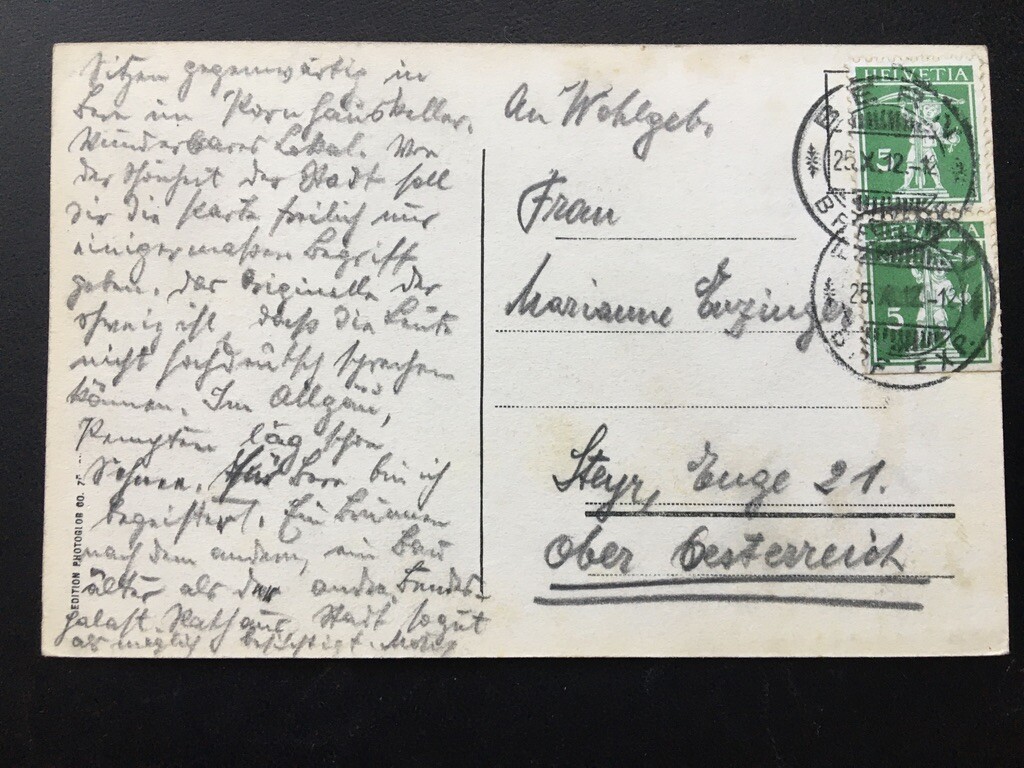 Sitzen gegenwärtig in
Bern im Kornhauskeller.
Wunderbares Lokal. Von
der Schönheit der Stadt soll
dir die Karte freilich nur
einigermaßen Begriff
geben. das Originelle der
Schweiz ist, dass die Leute
nicht hochdeutsch sprechen
können. Im Allgäu,
Kempten lag schon
Schnee. Für Bern bin ich
begeistert. Ein Brunnen
nach dem andern, ein Bau
älter als der andre. Bundes-
palast, Rathaus, Stadt so gut
als möglich besichtigt.
An Wohlgeb.
Frau
Marianne Enzinger
Steyr, Enge 21.
Ober Oesterreich
HELVETIA
5
BERN
25.X.12.-12
BRIEF EXP.
5
25.X.12.-12
BRIEF EXP.
EDITION PHOTOGLOB CO.